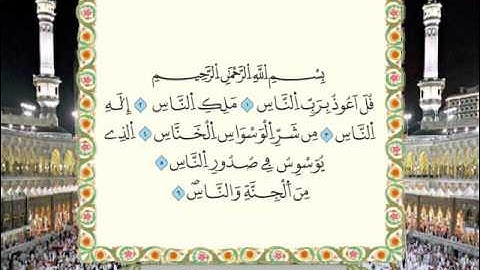 بِسْمِ اللَّهِ الرَّحْمَٰنِ الرَّحِيمِ
قُلْ أَعُوذُ بِرَبِّ النَّاسِ ۝١ مَلِكِ النَّاسِ ۝٢ إِلَٰهِ
النَّاسِ ۝٣ مِن شَرِّ الْوَسْوَاسِ الْخَنَّاسِ ۝٤ الَّذِي
يُوَسْوِسُ فِي صُدُورِ النَّاسِ ۝٥
مِنَ الْجِنَّةِ وَالنَّاسِ ۝٦